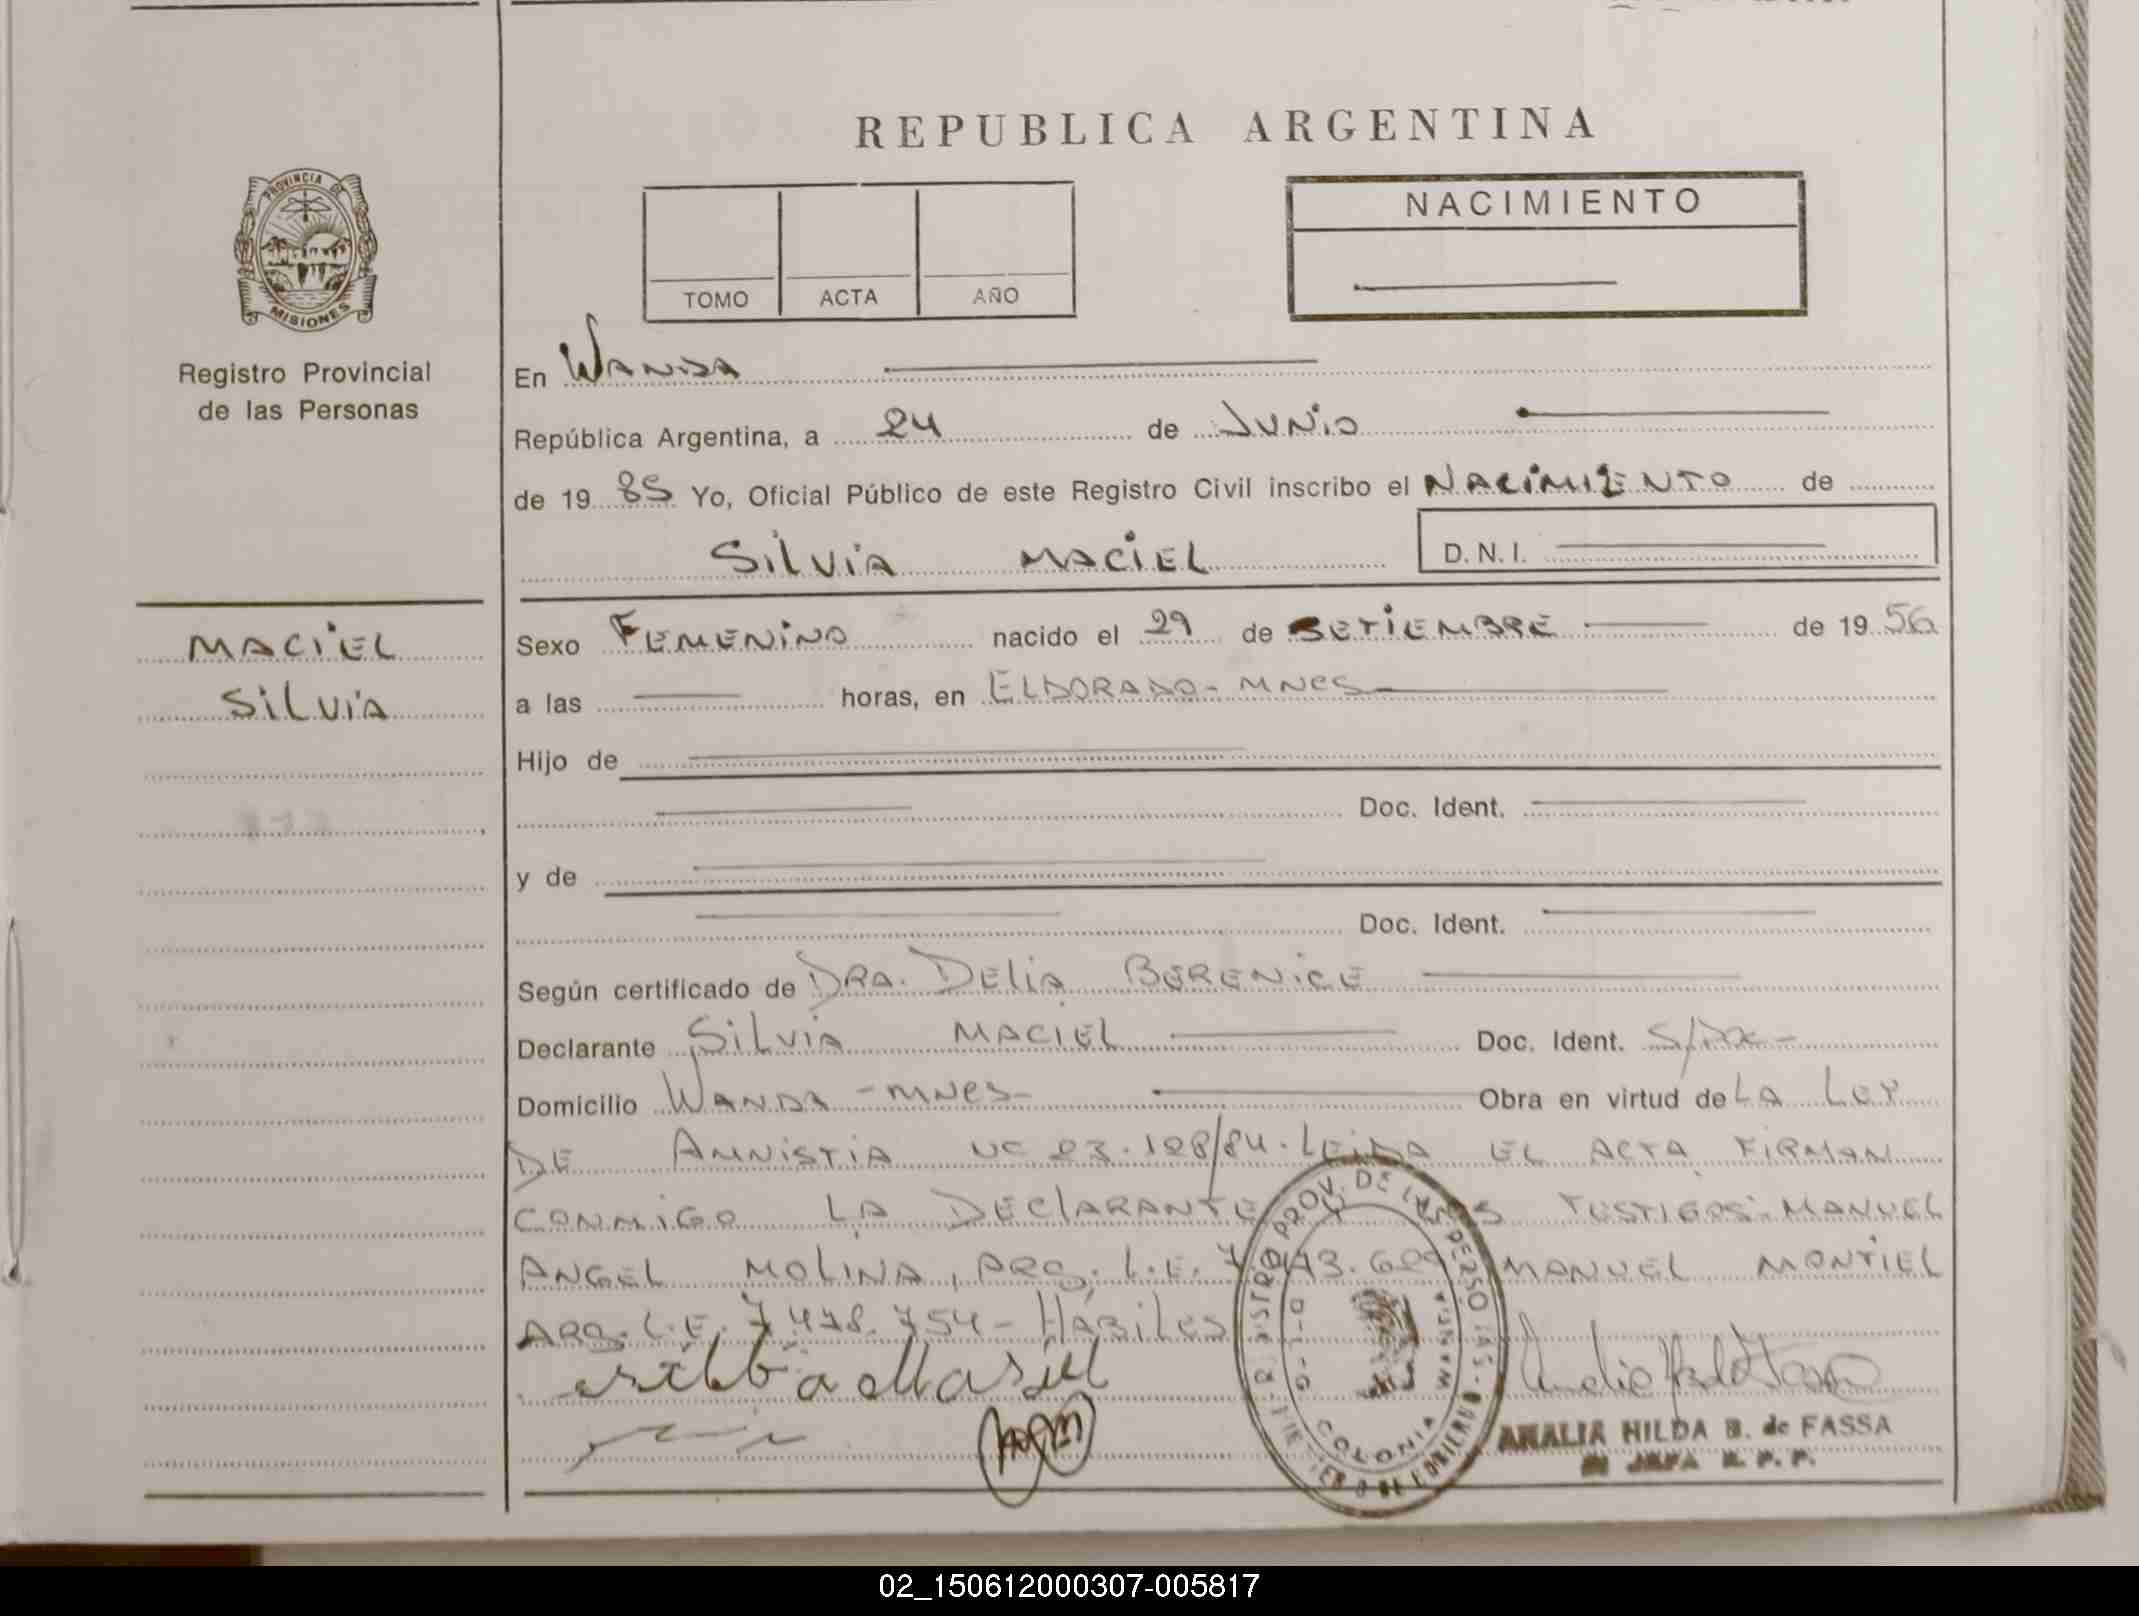 REPUBLICA ARGENTINA
PROVINCIA DE
MISIONES
Registro Provincial
de las Personas
TOMO ACTA AÑO
NACIMIENTO
En WANDA
República Argentina, a 24 de JUNIO
de 19 85 Yo, Oficial Público de este Registro Civil inscribo el NACIMIENTO de
SILVIA MACIEL D.N.I.
MACIEL
SILVIA
Sexo FEMENINO nacido el 29 de SETIEMBRE de 19 56
a las horas, en ELDORADO - MNES
Hijo de
Doc. Ident.
y de
Doc. Ident.
Según certificado de DRA. DELIA BERENICE
Declarante SILVIA MACIEL Doc. Ident.
Domicilio WANDA - MNES - Obra en virtud de LA LEY
DE AMNISTIA 23.128/84. LEIDA EL ACTA FIRMAN
CONMIGO LA DECLARANTE TESTIGOS: MANUEL
ANGEL MOLINA, ARG. L.E. MANUEL MONTIEL
ARG. L.E. 7.478.754 - HABILES
COLONIA WANDA
ANALIA HILDA B. de FASSA
02_150612000307-005817